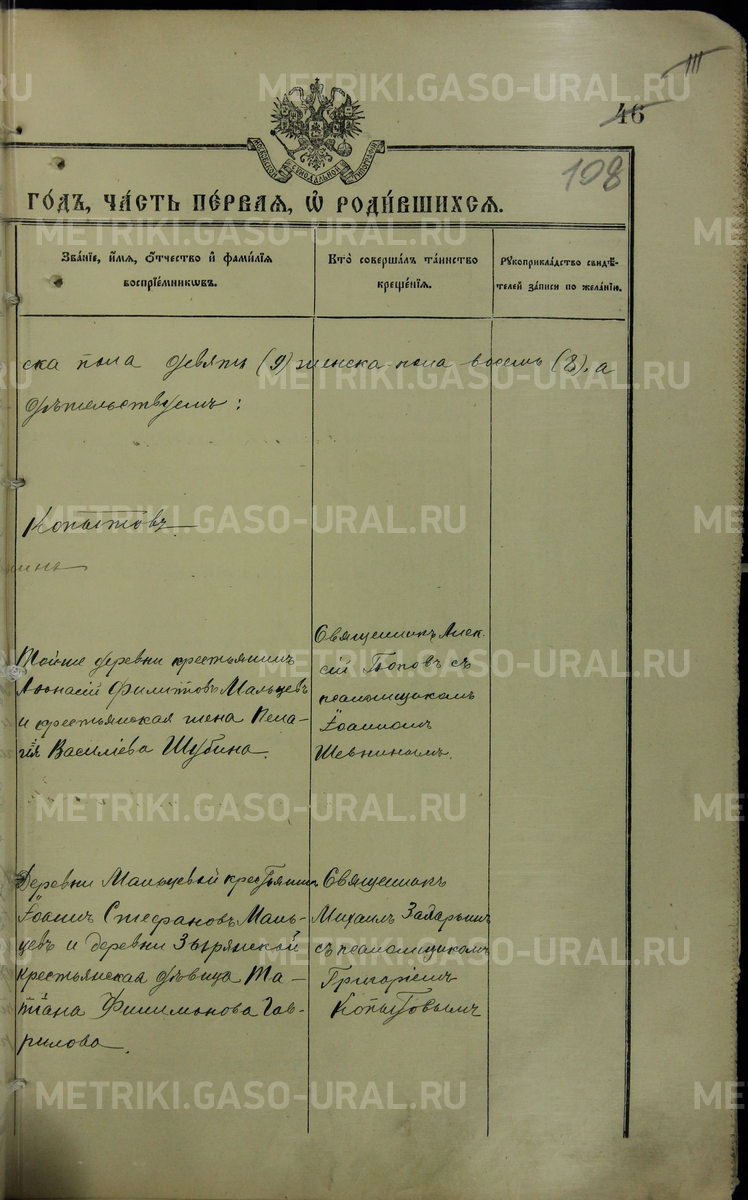 III
46
108
МОСКОВСКОЙ СѴНОДАЛЬНОЙ ТИПОГРАФІИ
ГО́ДЪ, ЧА́СТЬ ПЕ́РВАѦ, Ѡ҆ РОДИ́ВШИХСѦ.
Зва́нїе, и҆́мѧ, ѻ҆́тчество и҆ фами́лїѧ
воспрїе́мникѡвъ.
Кто̀ соверша́лъ та́инство
креще́нїѧ.
Рꙋкоприкла́дство свидѣ́-
телей за́писи по жела́нїю.
ска пола девять (9) женска пола восемь (8), а
дѣтельствуемъ:
Копытовъ
Тойже деревни крестьянинъ
Аѳонасій Филитовъ Мальцевъ
и крестьянская жена Пела-
гія Василіева Шубина.
Священникъ Алек-
сій Поповъ съ
псаломщикомъ
Іоанномъ
Шевнинымъ.
Деревни Мальцевой крестьянинъ
Іоаннъ Стефановъ Маль-
цевъ и деревни Зырянской
крестьянская дѣвица Та-
тіана Филимонова Гав-
рилова.
Священникъ
Михаилъ
съ псаломщикомъ
Григоріемъ
Копытовымъ
METRIKI.GASO-URAL.RU